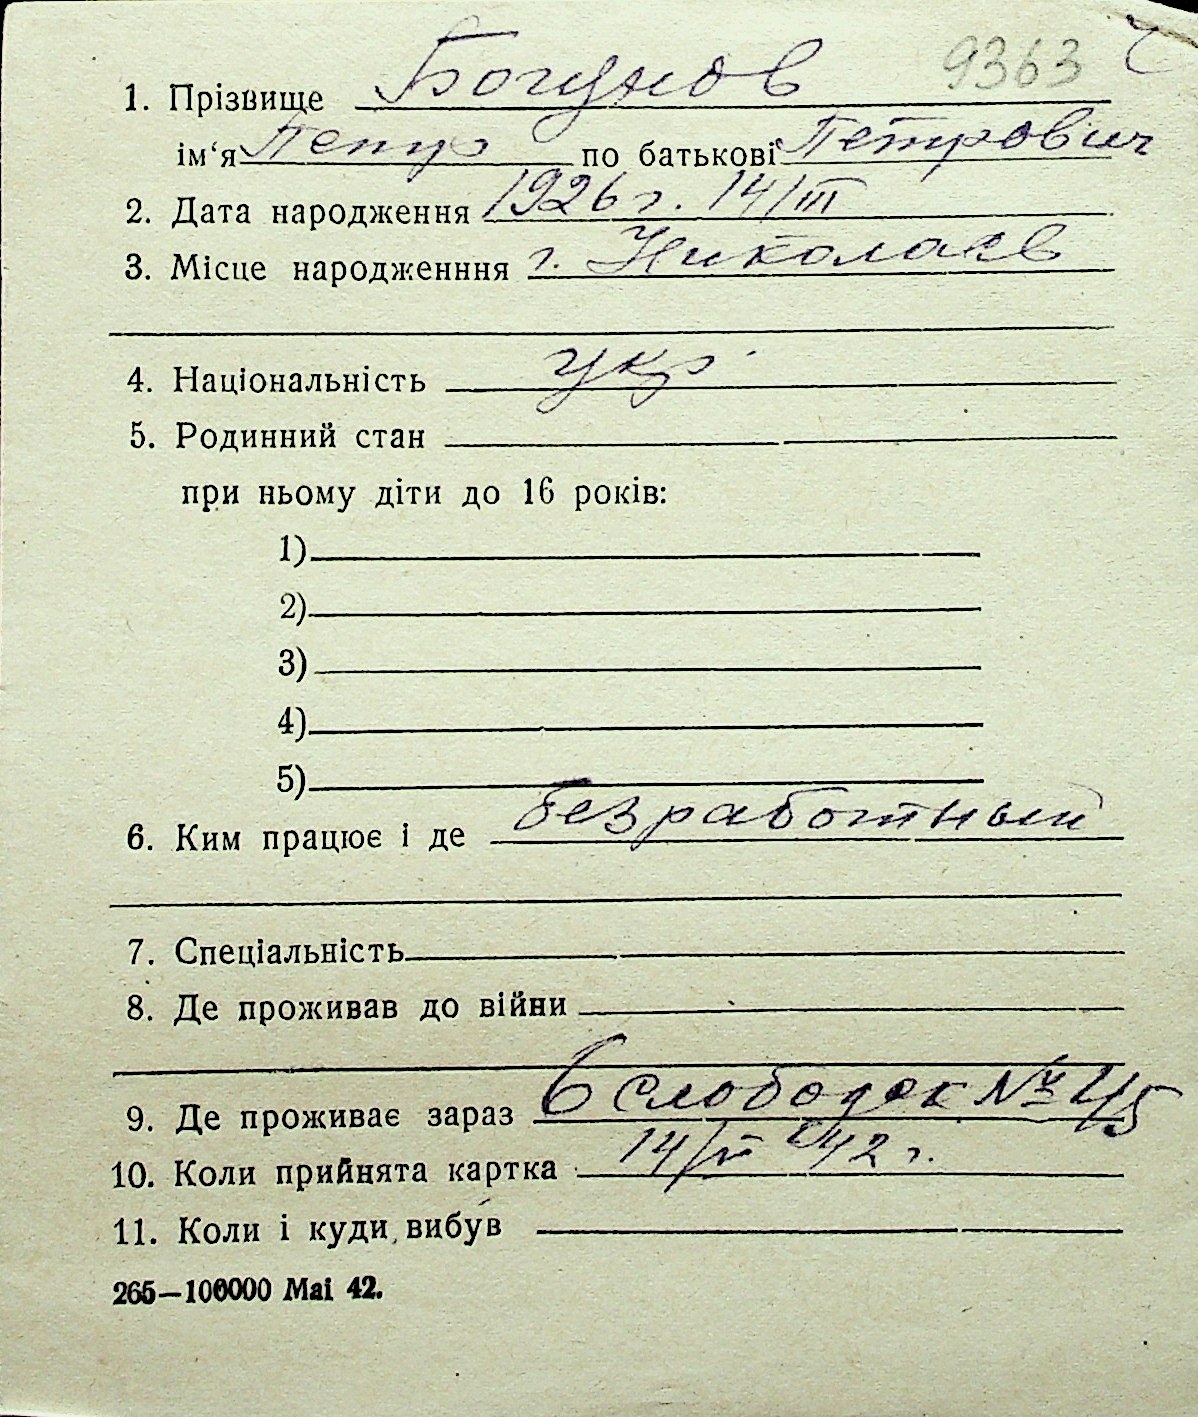 9363
1. Прізвище Богунов
ім‘я Петр по батькові Петрович
2. Дата народження 1926 г. 14/III
3. Місце народженння г. Николаев
4. Національність укр.
5. Родинний стан
при ньому діти до 16 років:
1)
2)
3)
4)
5)
6. Ким працює і де безработный
7. Спеціальність
8. Де проживав до війни
9. Де проживає зараз 6 слободск № 45
10. Коли прийнята картка 14/ 42 г.
11. Коли і куди вибув
265—100000 Mai 42.